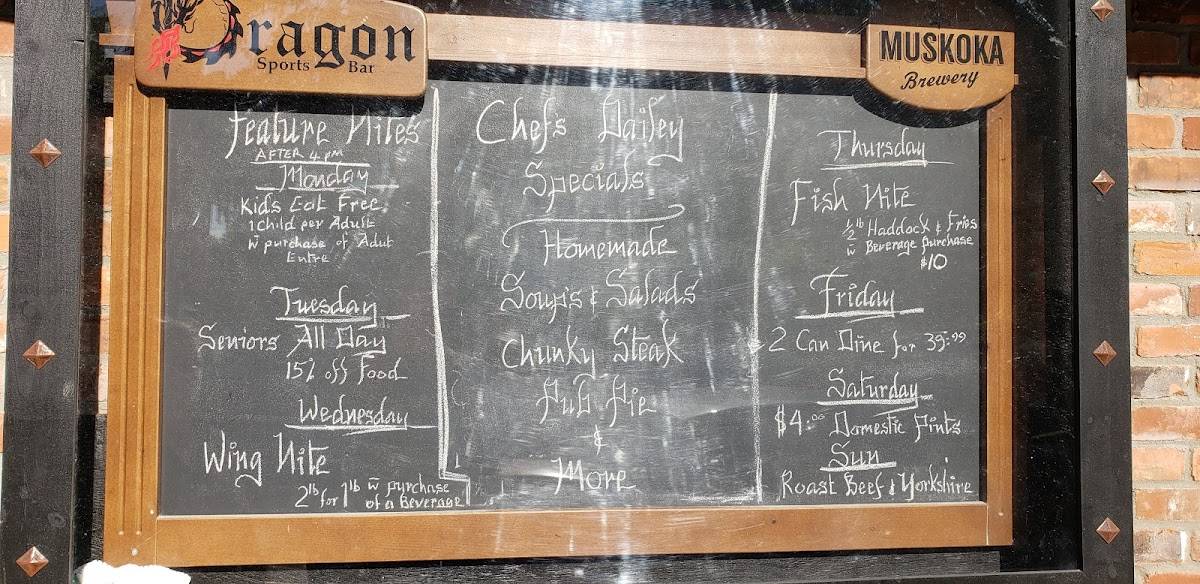 Dragon
Sports Bar
MUSKOKA
Brewery
Feature Nites
AFTER 4 pm
Monday
Kids Eat Free.
1 Child per Adult
w purchase of Adut
Entre
Tuesday
Seniors All Day
15% off Food
Wednesday
Wing Nite
2lb for 1lb w purchase
of a Beverage
Chefs Dailey
Specials
Homemade
Soup's & Salads
Chunky Steak
Pub Pie
&
More
Thursday
Fish Nite
1/2 lb Haddock & Fries
w Beverage purchase
$10
Friday
2 Can Dine for 39.99
Saturday
$4.00 Domestic Pints
Sun
Roast Beef & Yorkshire